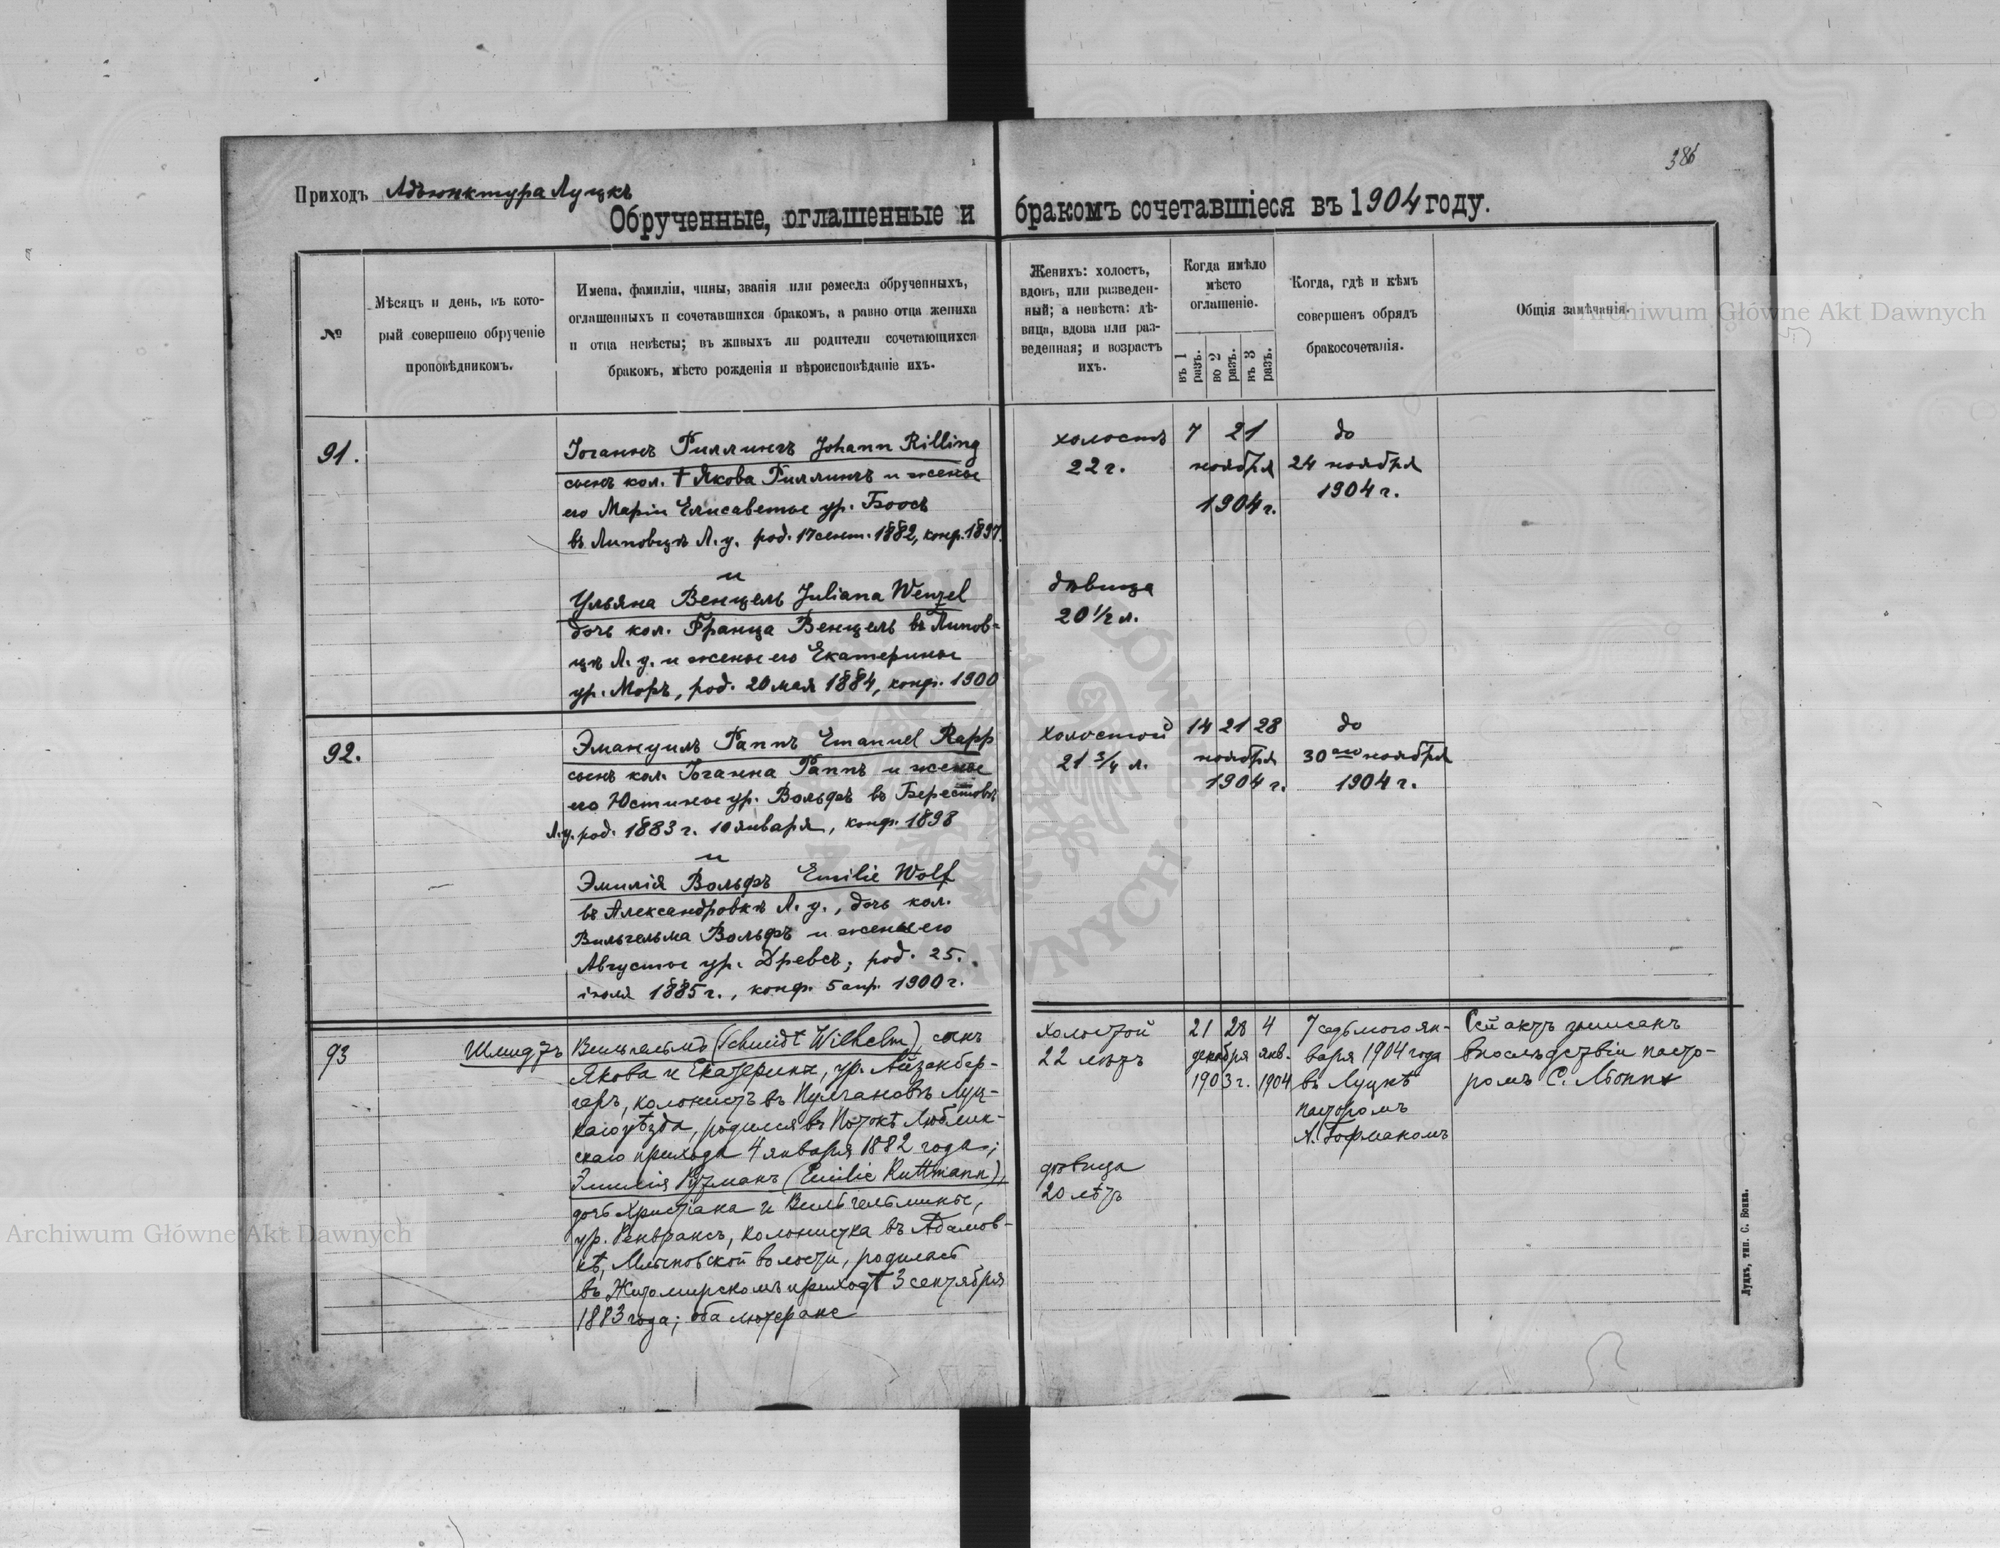 386
Приходъ Адъюнктура Луцкъ
Обрученные, оглашенные и бракомъ сочетавшіеся въ 1904 году.
№
Мѣсяцъ и день, въ кото-
рый совершено обрученіе
проповѣдникомъ.
Имена, фамиліи, чины, званія или ремесла обрученныхъ,
оглашенныхъ и сочетавшихся бракомъ, а равно отца жениха
и отца невѣсты; въ живыхъ ли родители сочетающихся
бракомъ, мѣсто рожденія и вѣроисповѣданіе ихъ.
Женихъ: холостъ,
вдовъ, или разведен-
ный; а невѣста: дѣ-
вица, вдова или раз-
веденная; и возрастъ
ихъ.
Когда имѣло
мѣсто
оглашеніе.
въ 1 разъ.
во 2 разъ.
въ 3 разъ.
Когда, гдѣ и кѣмъ
совершенъ обрядъ
бракосочетанія.
Общія замѣчанія.
91.
Іоганнъ Риллингъ Johann Rilling
сынъ кол. † Якова Риллингъ и жены
его Маріи Елисаветы ур. Боосъ
въ Липовцѣ Л. у. род. 17 сент. 1882, конф. 1897.
и
Ульяна Венцель Juliana Wenzel
дочь кол. Франца Венцель въ Липов-
цѣ Л. у. и жены его Екатерины
ур. Моръ, род. 20 мая 1884, конф. 1900
холостъ
22 г.
дѣвица
20 1/2 л.
7 21
ноября
1904 г.
до
24 ноября
1904 г.
92.
Эмануилъ Раппъ Emanuel Rapp
сынъ кол. Іоганна Раппъ и жены
его Юстины ур. Вольфъ въ Берестовкѣ
Л. у. род. 1883 г. 10 января, конф. 1898
и
Эмилія Вольфъ Emilie Wolf
въ Александровкѣ Л. у., дочь кол.
Вильгельма Вольфъ и жены его
Августы ур. Древсъ; род. 25.
іюля 1885 г., конф. 5 апр. 1900 г.
холостой
21 3/4 л.
14 21 28
ноября
1904 г.
до
30 го ноября
1904 г.
93
Шмидтъ Вильгельмъ (Schmidt Wilhelm), сынъ
Якова и Екатерины, ур. Айзенбер-
геръ, колонистъ въ Луц-
каго уѣзда, родился въ Потокѣ Люблин-
скаго прихода 4 января 1882 года;
Эмилія Рутманъ (Emilie Ruttmann),
дочь Христіана и Вильгельмины,
ур. колонистка въ Адамов-
кѣ, волости, родилась
въ Житомирскомъ приходѣ 3 сентября
1883 года; оба лютеране
холостой
22 лѣтъ
дѣвица
20 лѣтъ
21 28 4
декабря янв.
1903 г. 1904
7 седьмого ян-
варя 1904 года
въ Луцкѣ
пасторомъ
А. Гофманомъ
Сей актъ записанъ
впослѣдствіи пасто-
ромъ С.
Луцкъ, тип. С. Бонка.
Archiwum Główne Akt Dawnych
Archiwum Główne Akt Dawnych